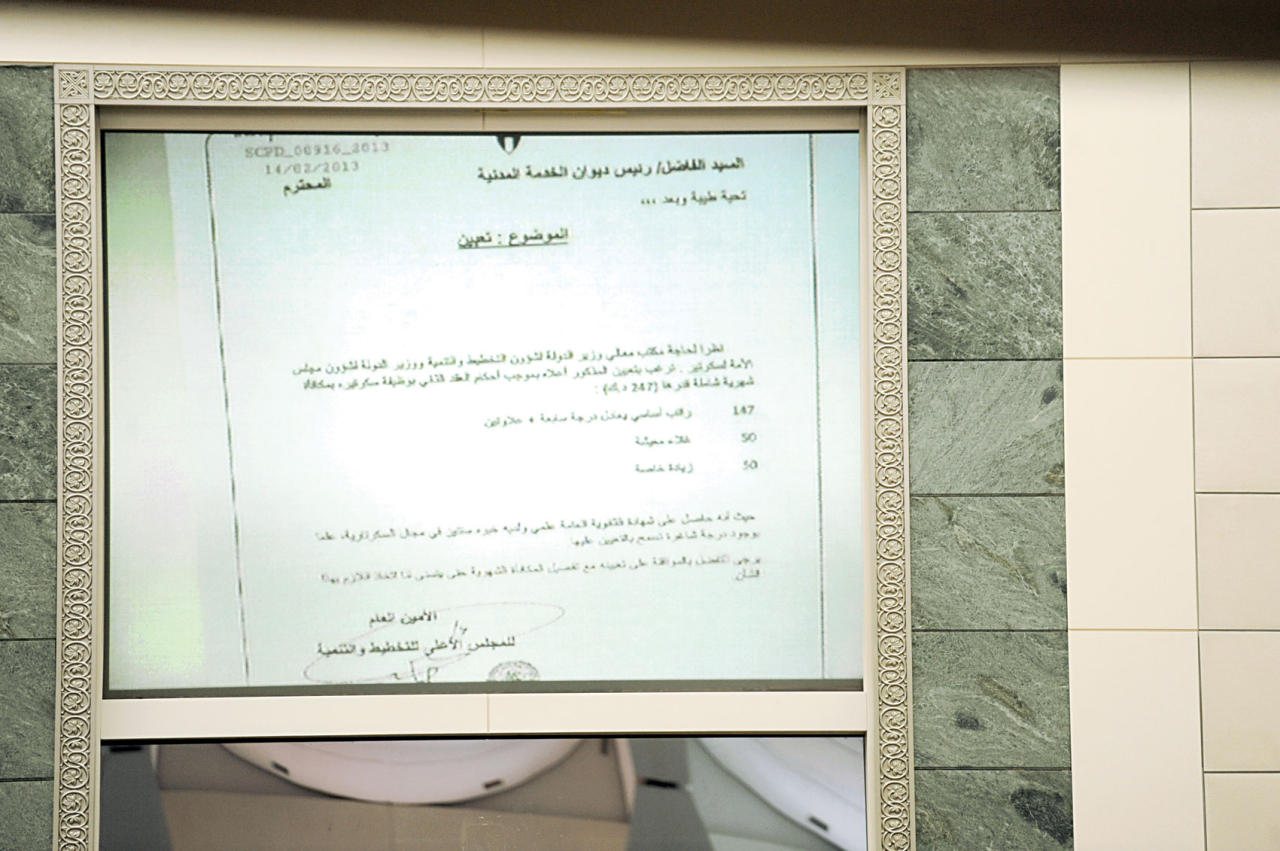 SCPD_00916_2013
14/02/2013
السيد الفاضل/ رئيس ديوان الخدمة المدنية
المحترم
تحية طيبة وبعد ،،،
الموضوع : تعيين
نظرا لحاجة مكتب معالي وزير الدولة لشؤون التخطيط والتنمية ووزير الدولة لشؤون مجلس
الأمة لسكرتير . نرغب بتعيين المذكور أعلاه بموجب أحكام العقد الثاني بوظيفة سكرتير، بمكافأة
شهرية شاملة قدرها (247 د.ك) :
147 راتب أساسي يعادل درجة سابعة + علاوتين
50 غلاء معيشة
50 زيادة خاصة
حيث أنه حاصل على شهادة الثانوية العامة علمي ولديه خبره سنتين في مجال السكرتارية، علما
بوجود درجة شاغرة تسمح بالتعيين عليها.
يرجى التفضل بالموافقة على تعيينه مع تفصيل المكافأة الشهرية حتى يتسنى لنا اتخاذ اللازم بهذا
الشأن.
الأمين العام
للمجلس الأعلى للتخطيط والتنمية